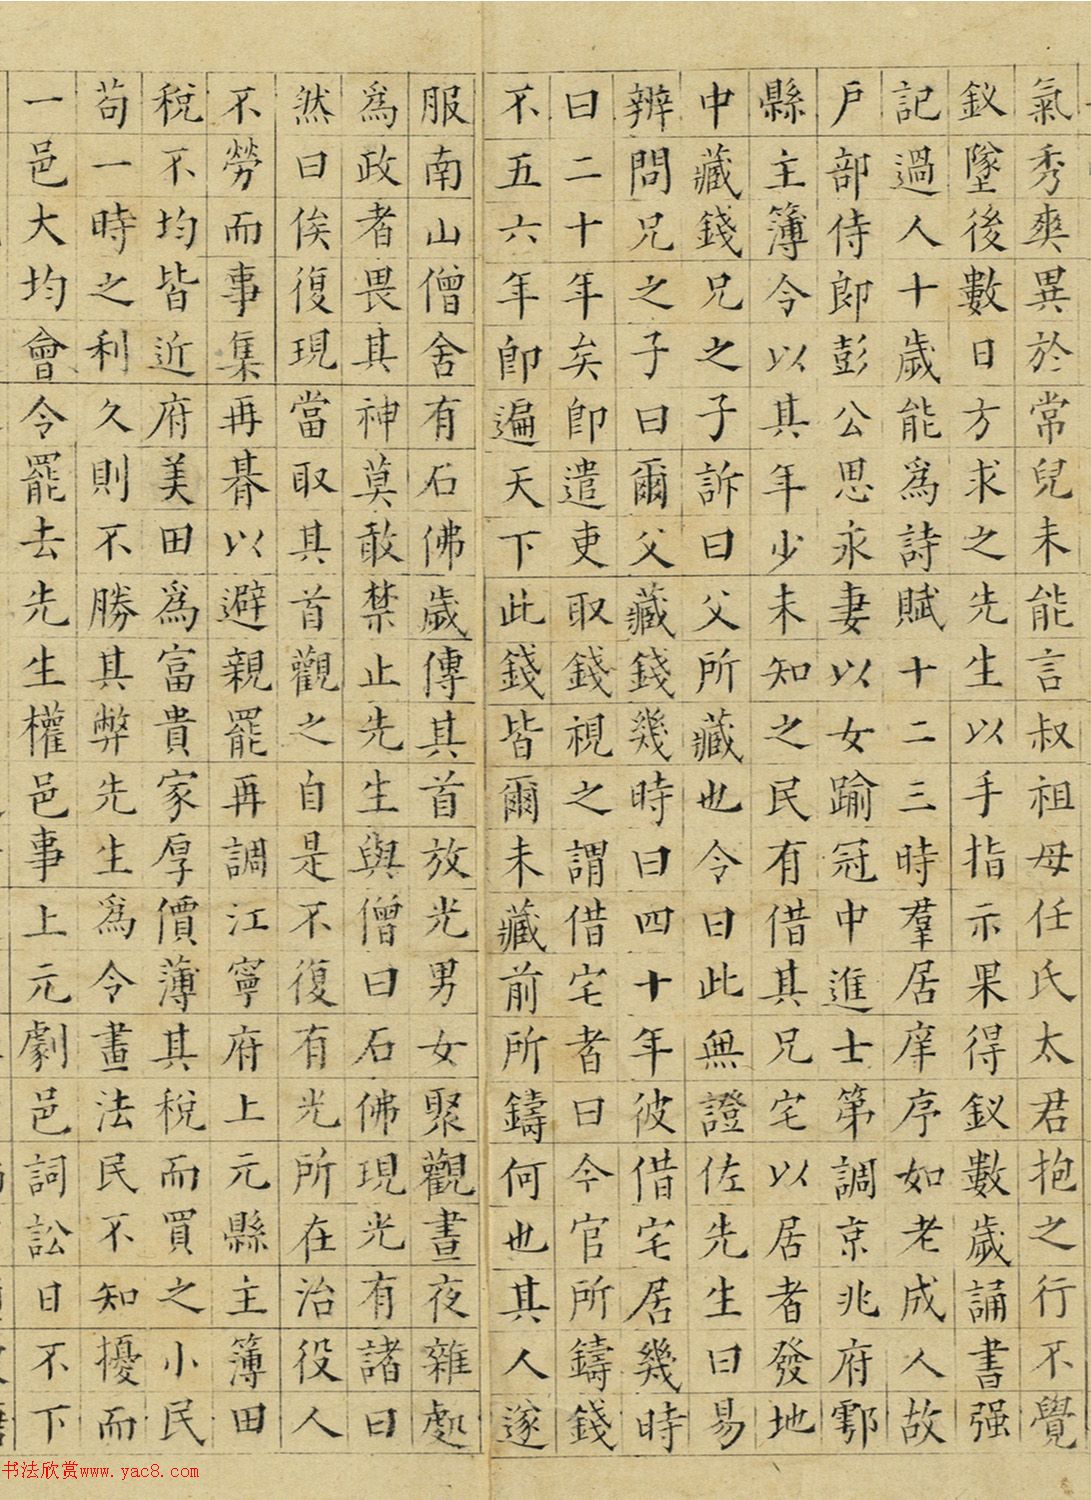 氣秀爽異於常兒未能言叔祖母任氏太君抱之行不覺
釵墜後數日方求之先生以手指示果得釵數歲誦書强
記過人十歲能爲詩賦十二三時羣居庠序如老成人故
戶部侍郎彭公思永妻以女踰冠中進士第調京兆府鄠
縣主簿令以其年少未知之民有借其兄宅以居者發地
中藏錢兄之子訴曰父所藏也令曰此無證佐先生曰易
辨問兄之子曰爾父藏錢幾時曰四十年彼借宅居幾時
曰二十年矣卽遣吏取錢視之謂借宅者曰今官所鑄錢
不五六年卽遍天下此錢皆爾未藏前所鑄何也其人遂
服南山僧舍有石佛歲傳其首放光男女聚觀晝夜雜處
爲政者畏其神莫敢禁止先生與僧曰石佛現光有諸曰
然曰俟復現當取其首觀之自是不復有光所在治役人
不勞而事集再朞以避親罷再調江寧府上元縣主簿田
稅不均皆近府美田爲富貴家厚價薄其稅而買之小民
苟一時之利久則不勝其弊先生爲令畫法民不知擾而
一邑大均會令罷去先生權邑事上元劇邑詞訟日不下
书法欣赏www.yac8.com